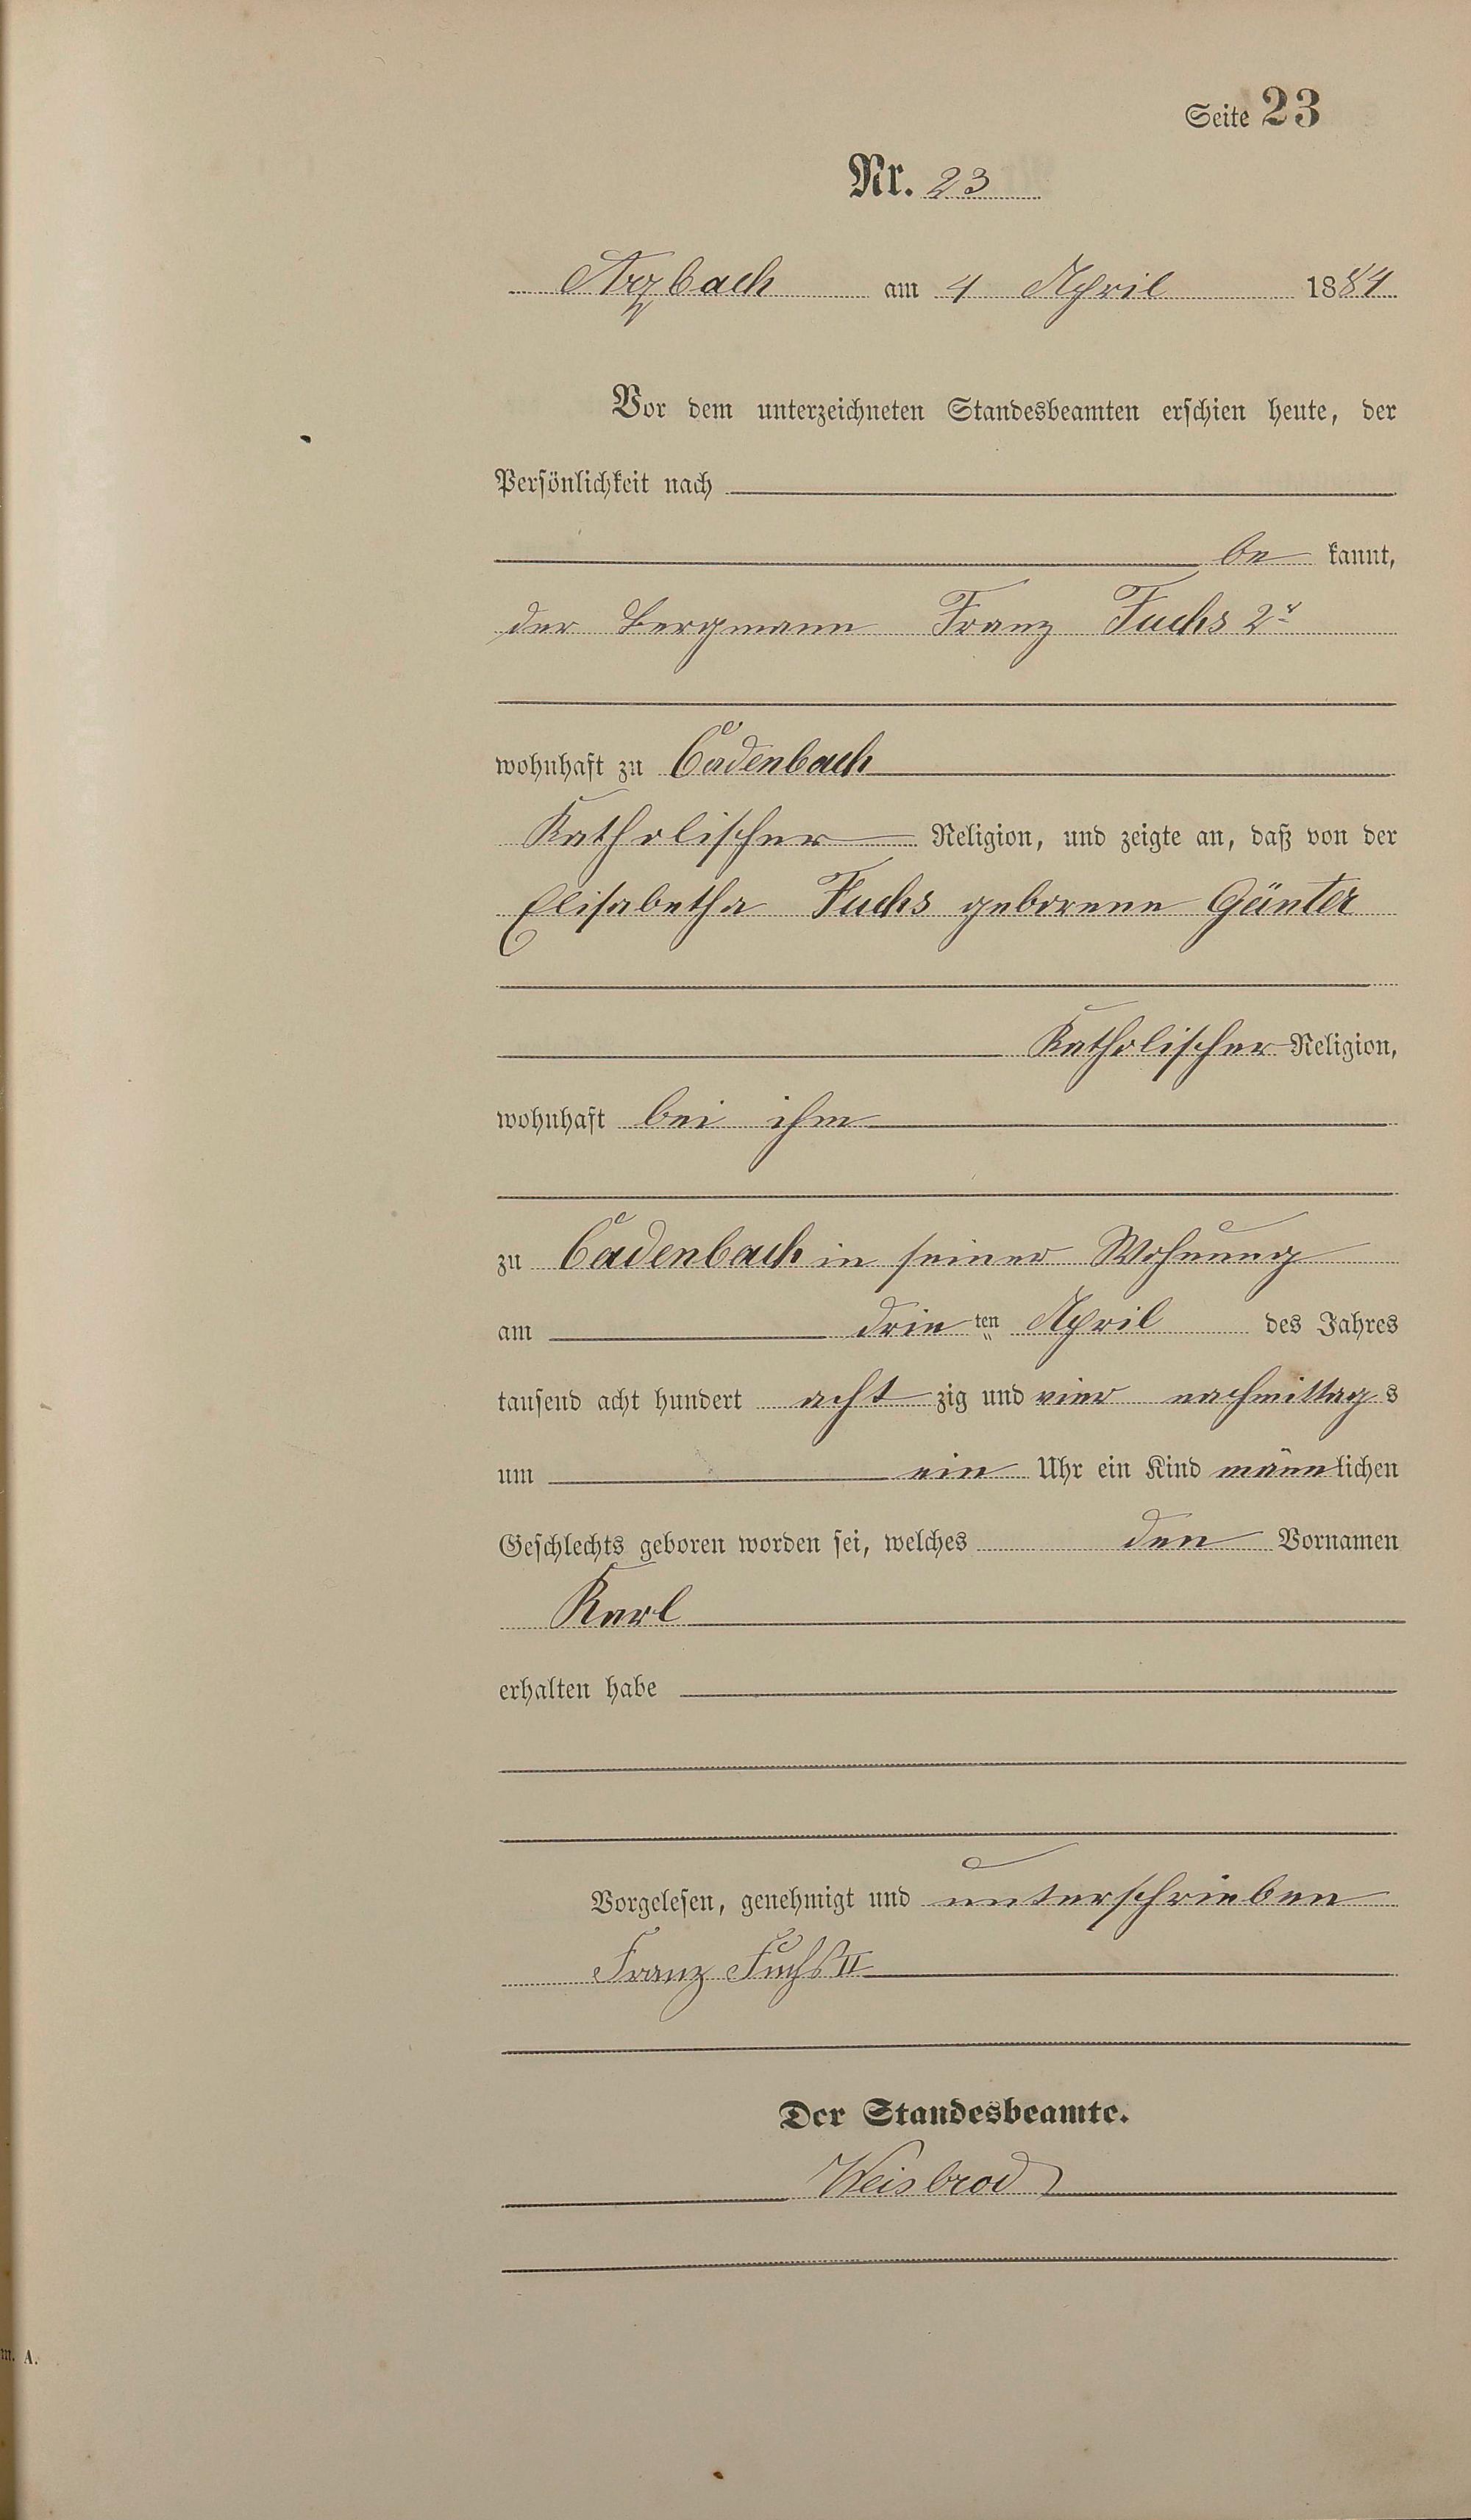 Seite 23
Nr. 23
Arzbach am 4 April 1884
Vor dem unterzeichneten Standesbeamten erschien heute, der
Persönlichkeit nach
be kannt,
der Bergmann Franz Fuchs 2r
wohnhaft zu Cadenbach
Katholischer Religion, und zeigte an, daß von der
Elisabetha Fuchs geborene Günter
Katholischer Religion,
wohnhaft bei ihm
zu Cadenbach in seiner Wohnung
am drei ten April des Jahres
tausend acht hundert acht zig und vier nachmittag s
um ein Uhr ein Kind männ lichen
Geschlechts geboren worden sei, welches den Vornamen
Karl
erhalten habe
Vorgelesen, genehmigt und unterschrieben
Franz Fuchs II
Der Standesbeamte.
Weisbrod
m. A.